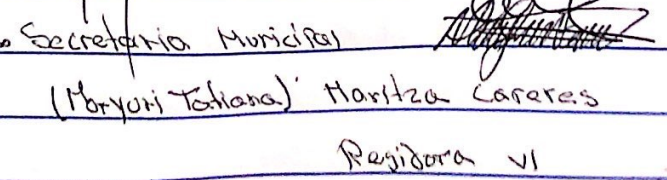 Secretaria Municipal
(Maryuri Tatiana) Maritza Caceres
Regidora VI